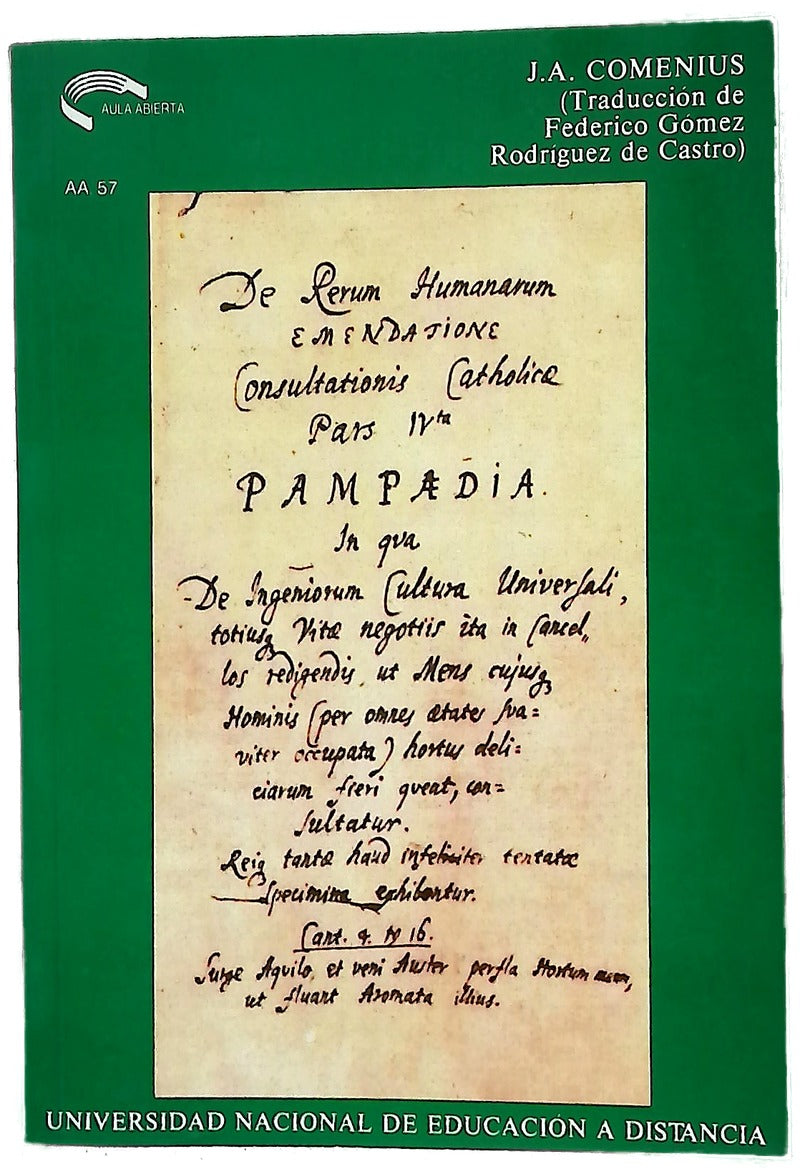 AULA ABIERTA
AA 57
J.A. COMENIUS
(Traducción de
Federico Gómez
Rodríguez de Castro)
De Rerum Humanarum
EMENDATIONE
Consultationis Catholicæ
Pars IVta
PAMPÆDIA.
In qva
De Ingeniorum Cultura Universali,
totiusq; Vitæ negotiis ita in Cancel„
los redigendis, ut Mens cujusq;
Hominis (per omnes ætates sva=
viter occupata) hortus deli=
ciarum fieri qveat, con=
sultatur.
Reiq; tantæ haud infeliciter tentatæ
Specimina exhibentur.
Cant. 4. 16.
Surge Aquilo, et veni Auster perfla Hortum
ut fluant Aromata illius.
UNIVERSIDAD NACIONAL DE EDUCACIÓN A DISTANCIA